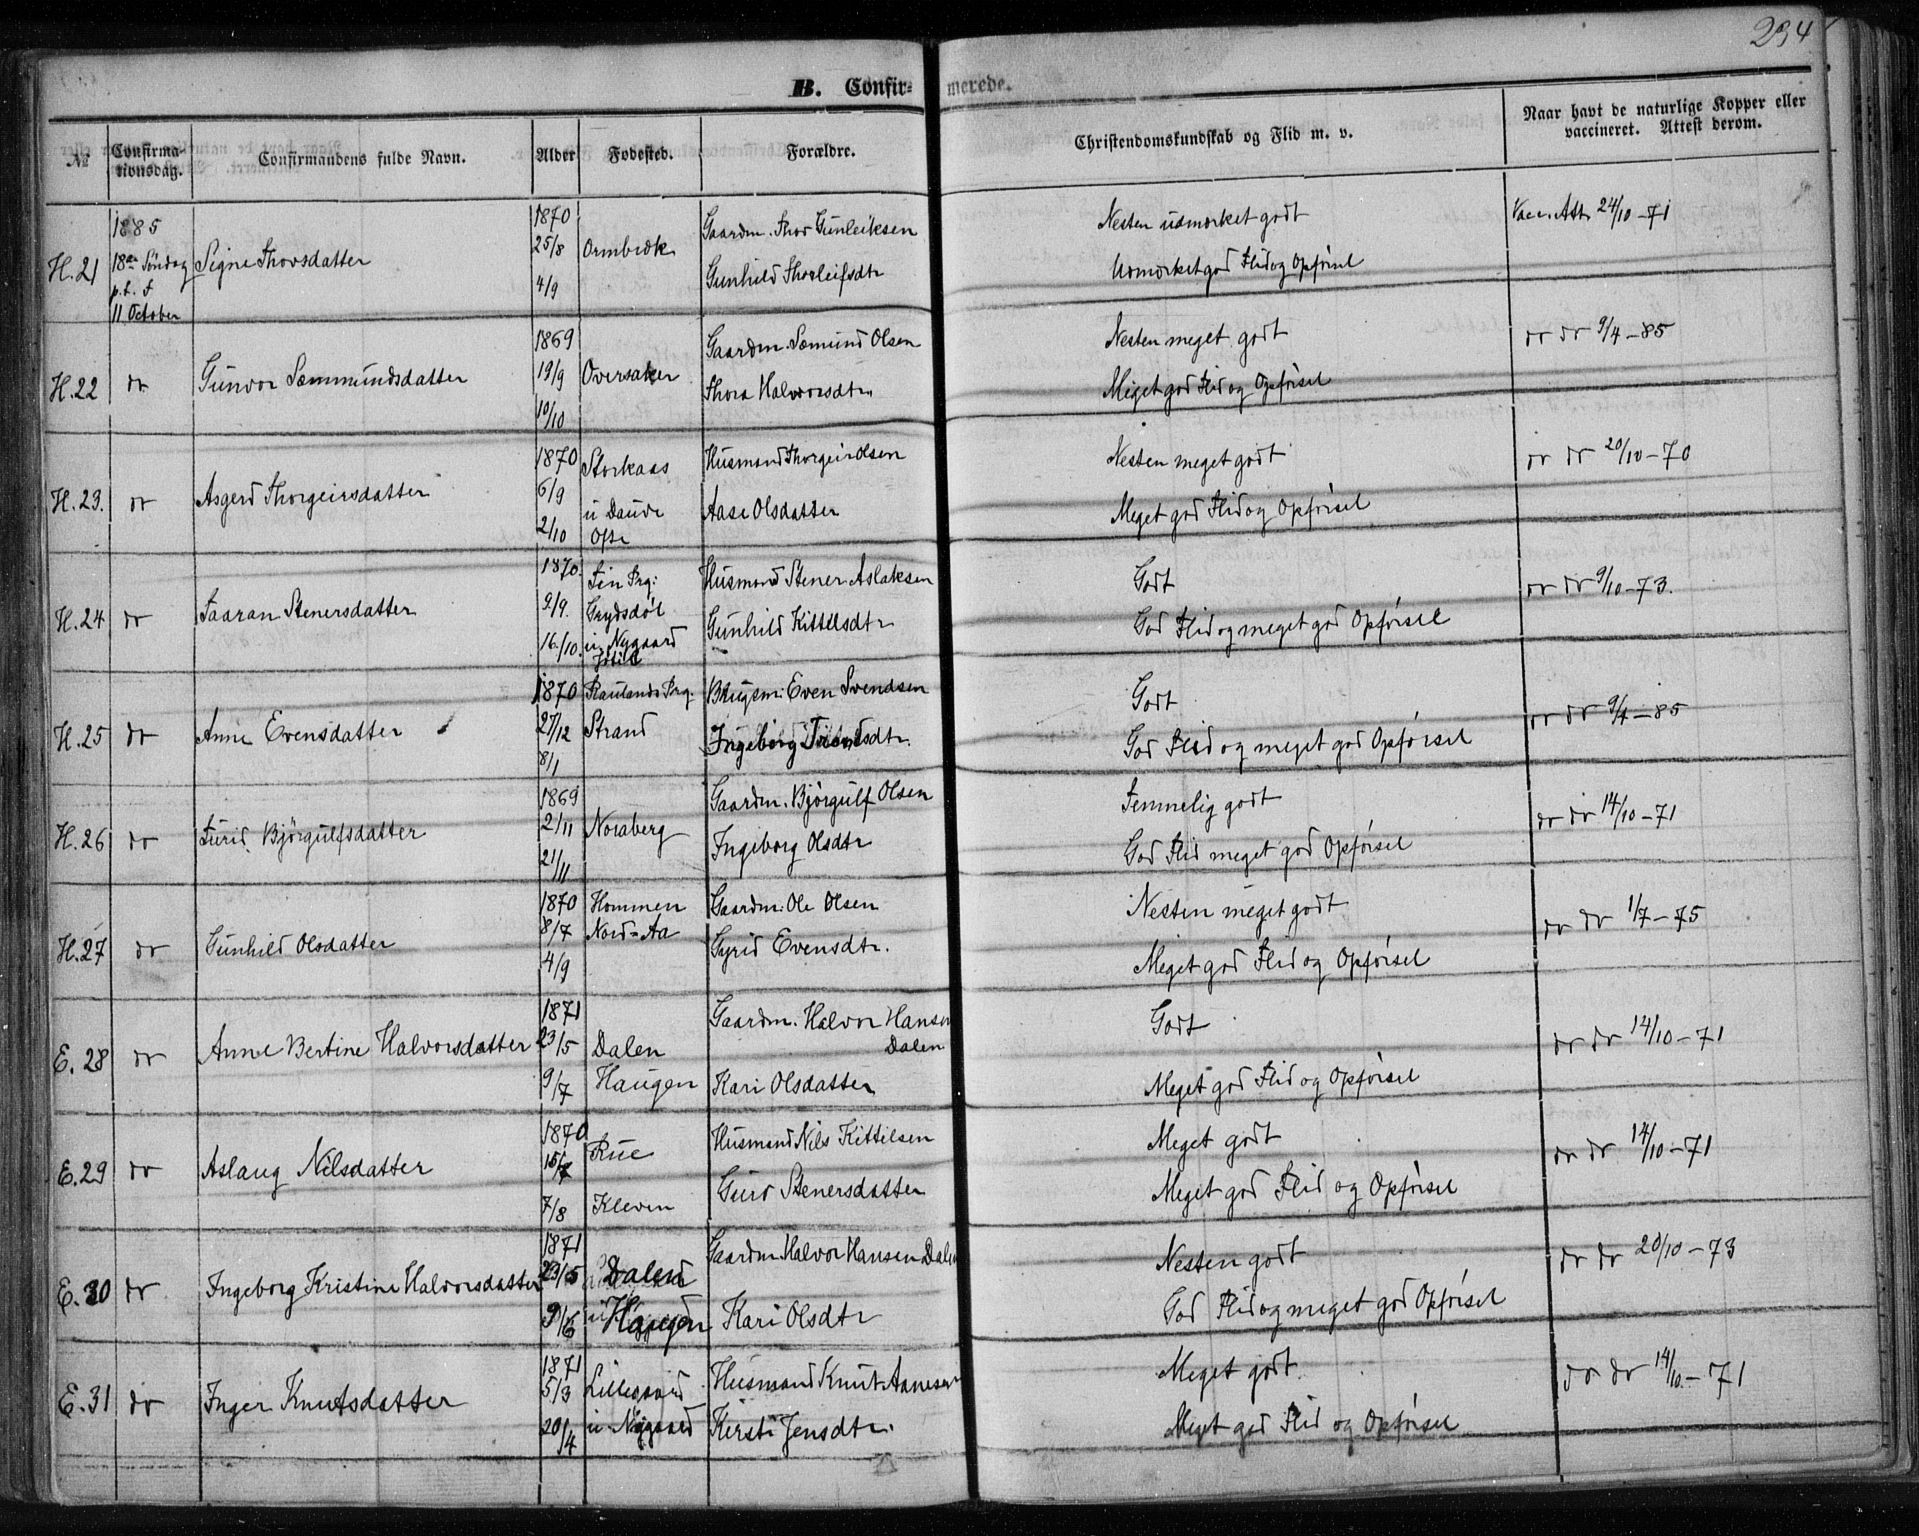 234
B. Confirmerede.
№ Confirmationsdag. Confirmandens fulde Navn. Alder Fødested. Forældre. Christendomskundskab og Flid m. v. Naar havt de naturlige Kopper eller vaccineret. Attest derom.
1885 1870 Gaardm. Thor Gunleiksen Nesten udmærket godt Vacc. Att. 24/10-71
H.21 18de Søndag Signe Thorsdatter 25/8 Ormbræk
p. t. f 4/9 Gunhild Thorleifsdtr Udmærket god Flid og Opførsel
11 October
1869 Gaardm. Sæmund Olsen Nesten meget godt dr dr 9/4-85
H.22 dr Gunvor Sæmmundsdatter 19/9 Oversaker Thora Halvorsdtr. Meget god Flid og Opførsel
10/10
1870 Storkaas Husmand Thorgeir Olsen Nesten meget godt dr dr 20/10-70
H.23. dr Asgerd Thorgeirsdatter 6/9 u Daude Aase Olsdatter Meget god Flid og Opførsel
2/10
1870. Tin Prg: Husmand Stener Aslaksen Godt dr dr 9/10-73.
H.24 dr Taaran Stenersdatter 9/9. Gunhild Kittilsdtr God Flid og meget god Opførsel
16./10. u. Nygaard
1870 Raulands Prg. Brugsm: Even Svendsen Godt
H.25 dr Anne Evensdatter 27/12 Strand Ingeborg sdtr. God Flid og meget god Opførsel dr dr 9/4-85
8/1
1869 Gaardm. Bjørgulf Olsen Temmelig godt dr dr 14/10-71
H.26 dr Turid Bjørgulfsdatter 2/11 Noraberg Ingeborg Olsdtr God Flid meget god Opførsel
21/11
1870 Hommen Gaardm: Ole Olsen Nesten meget godt dr dr 1/7-75
H.27 dr Gunhild Olsdatter 8/7 Nord-Aa Gyrid Evensdtr. Meget god Flid og Opførsel
4/9
1871 Gaardm. Halvor Hansen Godt
E.28 dr Anne Bertine Halvorsdatter 23/5 Dalen Dalen dr dr 14/10-71
9/7 Haugen Kari Olsdatter Meget god Flid og Opførsel
1870 Husmand Nils Kittilsen Meget godt dr dr 14/10-71
E.29 dr Aslaug Nilsdatter 15/7 Rue Guro Stenersdatter Meget god Flid og Opførsel
7/8 Kleven
1871 Gaardm. Halvor Hansen Dalen Nesten godt dr dr 20/10-73
E.30 dr Ingeborg Kristine Halvorsdatter 23/5 Dalen
9/6 Haugen Kari Olsdtr God Flid og meget god Opførsel
1871 Husmand Knut Aanesen Meget godt. dr dr 14/10-71
E.31 dr Inger Knutsdatter 5/3 Lillegaard
20/4 u. Nygaard Kersti Jensdtr. Meget god Flid og Opførsel